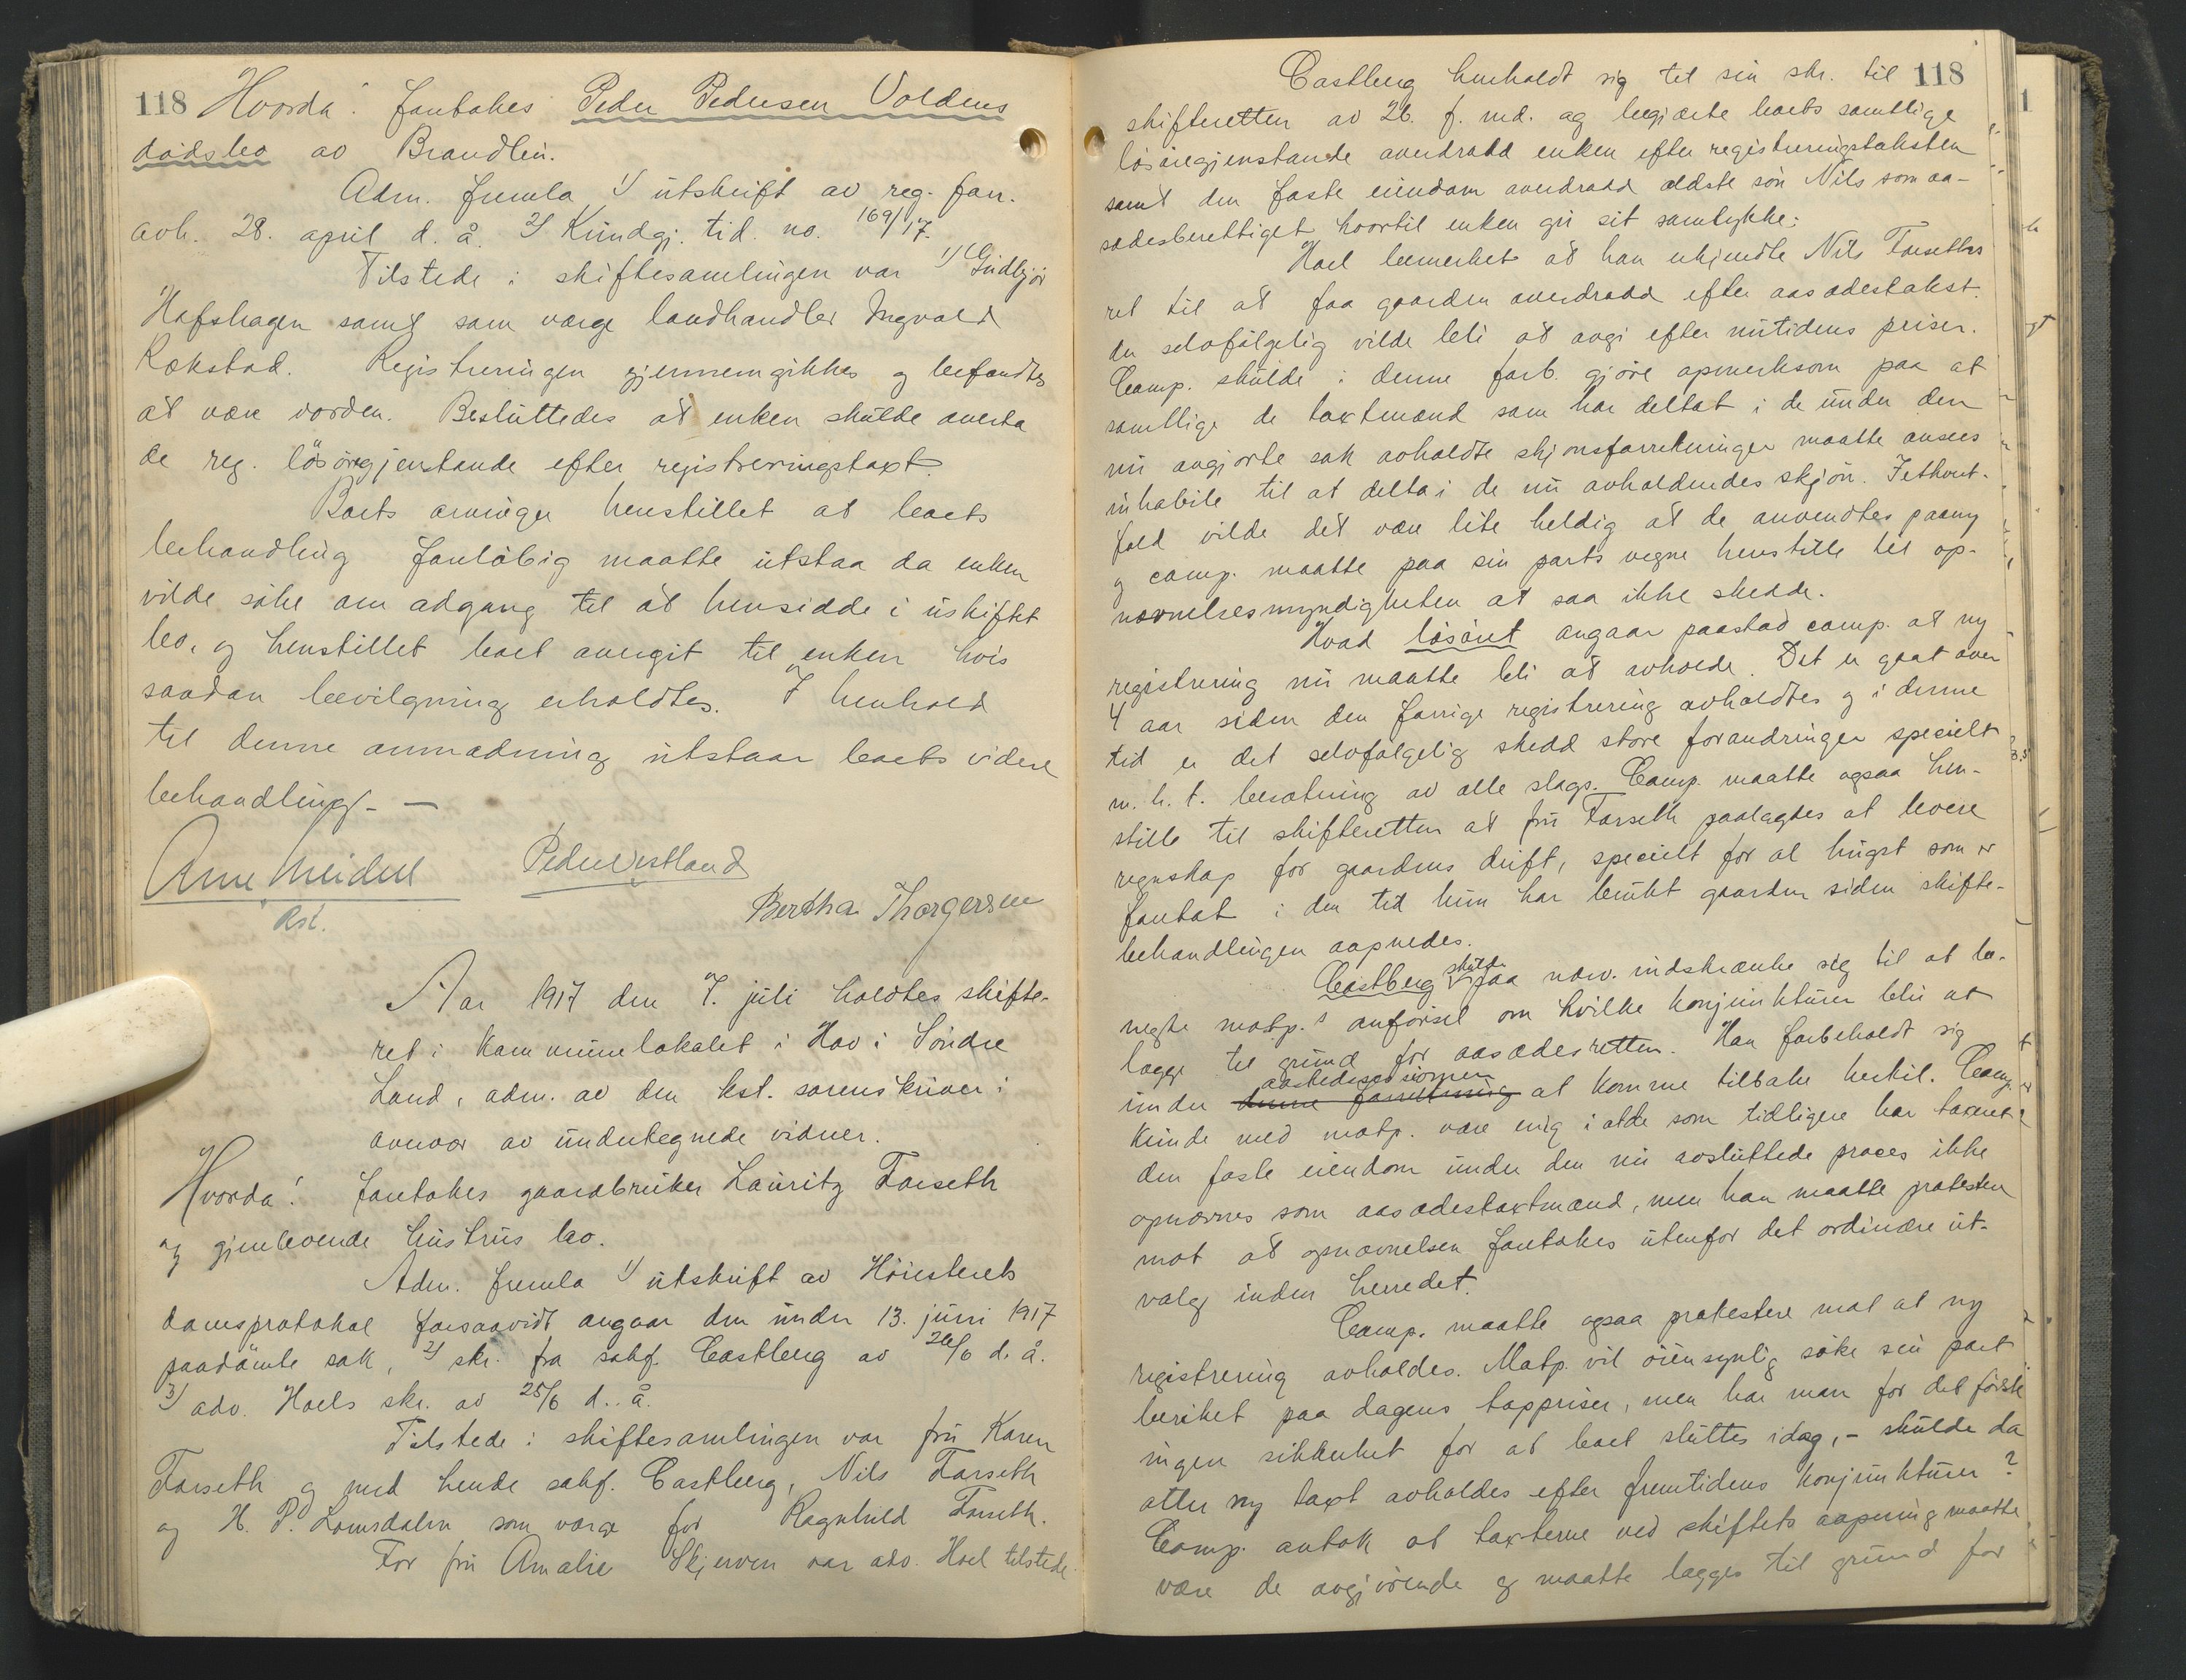 118 Hvorda! foretokes Peder Pedersen Voldens
dødsbo av Brandlien.
Adm. fremla 1/ utskrift av reg. forr.
avh. 28. april d. å. 2/ Kundgj. tid. no. 169/17.
Tilstede i skiftesamlingen var 1/ Gudbjør
Hafshagen samt som værge landhandler Ingvald
Rækstad. Registreringen gjennemgikkes og befandtes
at være iorden. Besluttedes at enken skulde overta
de reg. løsøregjenstande efter registreringstaxt.
Boets arvinger henstillet at boets
behandling foreløbig maatte utstaa da enken
vilde søke om adgang til at hensidde i uskiftet
bo, og henstillet boet overgit til enken hvis
saadan bevilgning erholdtes. I henhold
til denne anmodning utstaar boets videre
behandling. —
Arne Meidell
Ast.
Peder Vestland
Bertha Thorgersen
Aar 1917 den 7. juli holdtes skifte-
ret i kommunelokalet i Hov i Søndre
Land, adm. av den kst. sorenskriver i
overvær av undertegnede vidner.
Hvorda! foretokes gaardbruker Lauritz Farseth
og gjenlevende hustrus bo.
Adm. fremla 1/ utskrift av Høiesterets
domsprotokol forsaavidt angaar den under 13. juni 1917
paadømte sak, 2/ skr. fra sakf. Castberg av 26/6 d. å.
3/ adv. Hoels skr. av 25/6 d. å.
Tilstede i skiftesamlingen var fru Karen
Farseth og med hende sakf. Castberg, Nils Farseth
og H. P. Lomsdalen som værge for Ragnhild Farseth.
For fru Amalie Skjerven var adv. Hoel tilstede.
Castberg henholdt sig til sin skr. til 118
skifteretten av 26. f. md. og begjærte boets samtlige
løsøregjenstande overdradd enken efter registreringstaksten
samt den faste eiendom overdradd ældste søn Nils som aa-
sædesberettiget hvortil enken gir sit samtykke.
Hoel bemerket at han erkjendte Nils Farseths
ret til at faa gaarden overdradd efter aasædestakst.
der selvfølgelig vilde bli at avgi efter nutidens priser.
Comp. skulde i denne forb. gjøre opmerksom paa at
samtlige de taxtmænd som har deltat i de under den
nu avgjorte sak avholdte skjønsforretninger maatte ansees
inhabile til at delta i de nu avholdendes skjøn. I ethvert-
fald vilde det være lite heldig at de anvendtes paany
og comp. maatte paa sin parts vegne henstille til op-
nævnelsesmyndigheten at saa ikke skedde.
Hvad løsøret angaar paastod comp. at ny
registrering nu maatte bli at avholde. Det er gaat over
4 aar siden den forrige registrering avholdtes og i denne
tid er det selvfølgelig skedd store forandringer specielt
m. h. t. besætning av alle slags. Comp. maatte ogsaa hen-
stille til skifteretten at fru Farseth paalagdes at levere
regnskap for gaardens drift, specielt for al hugst som er
foretat i den tid hun har brukt gaarden siden skifte-
behandlingen aapnedes.
Castberg skulde paa nærv. indskrænke sig til at be-
negte motp.s anførsel om hvilke konjunkturer blir at
lægge til grund for aasædesretten. Han forbeholdt sig
under denne forretning aastedsessionen at komme tilbake hertil. Comp.
kunde med motp. være enig i at de som tidligere har taxeret
den faste eiendom under den nu avsluttede proces ikke
opnævnes som aasædestaxtmænd, men han maatte protestere
mot at opnævnelsen foretokes utenfor det ordinære ut-
valg inden herredet.
Comp. maatte ogsaa protestere mot at ny
registrering avholdes. Motp. vil øiensynlig søke sin part
beriket paa dagens toppriser, men har man for det første
ingen sikkerhet for at boet sluttes idag, - skulde da
atter ny taxt avholdes efter fremtidens konjunkturer?
Comp. antok at taxterne ved skiftets aapning maatte
være de avgjørende og maatte lægges til grund for